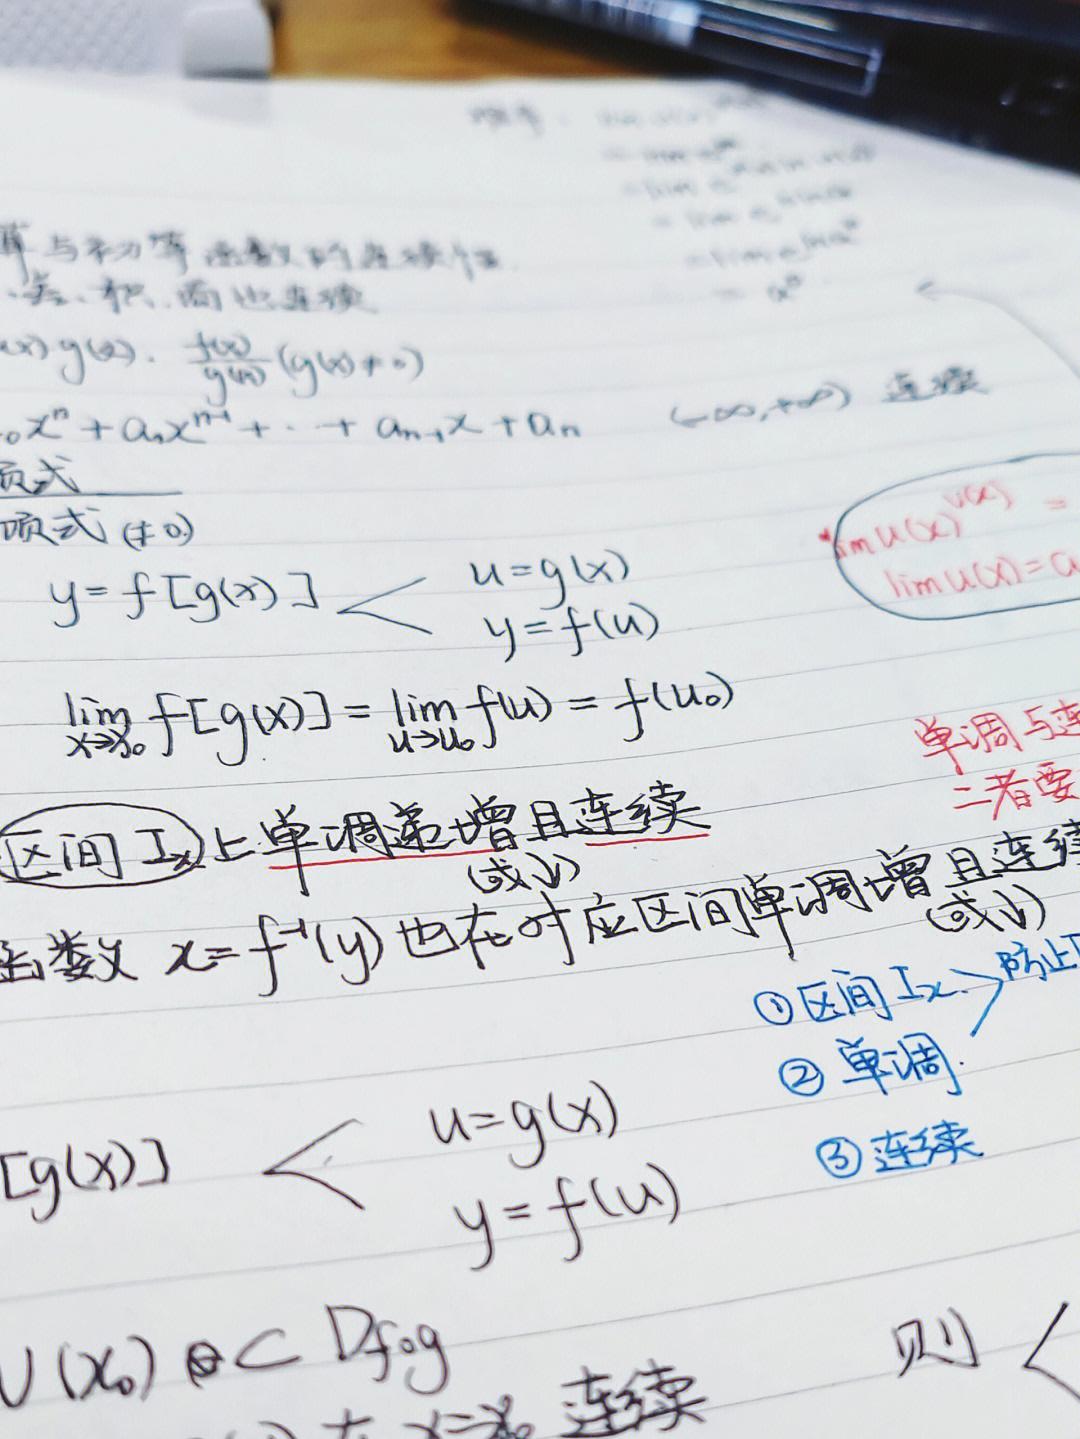 算与初等函数的连续性
差、积、商也连续
(x)g(x). f(x)/g(x) (g(x)≠0)
₀xⁿ + aₙxⁿ⁻¹ + ... + aₙ₋₁x + aₙ (-∞,+∞) 连续
项式
项式 (≠0)
lim u(x)^v(x) =
lim u(x) = a
y = f[g(x)] < u = g(x)
y = f(u)
lim x→x₀ f[g(x)] = lim u→u₀ f(u) = f(u₀)
单调与连
二者要
区间 Iₓ 上单调递增且连续
(或↓)
函数 x = f⁻¹(y) 也在对应区间单调增且连续
(或↓)
① 区间 Iₓ > 防止
② 单调.
③ 连续
[g(x)] < u = g(x)
y = f(u)
U(x₀) ⊂ Df∘g 则 <
在 x=x₀ 连续